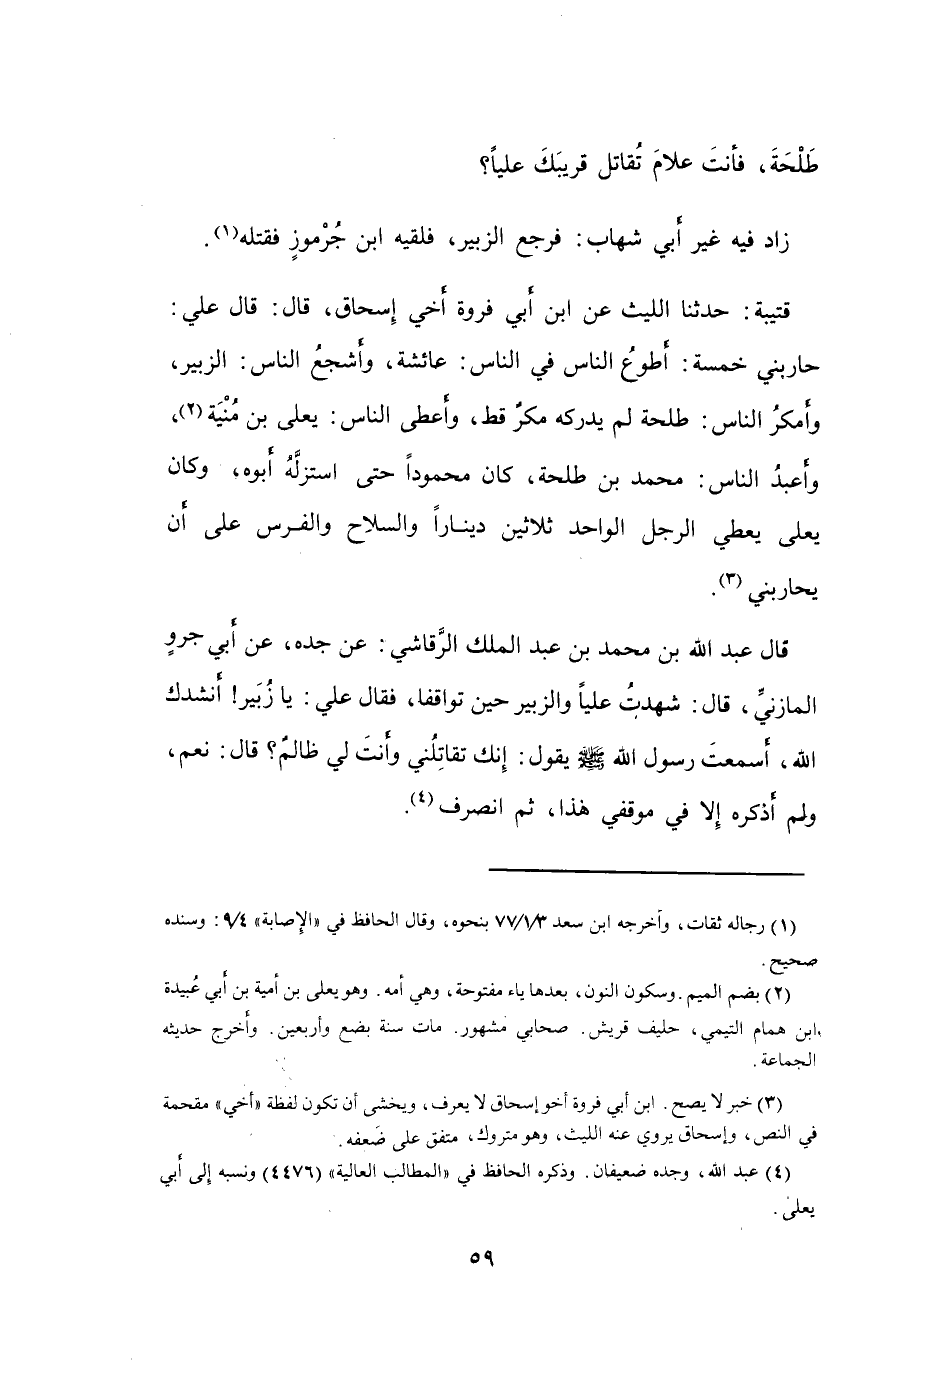 طَلْحَةَ، فأنتَ علامَ تُقاتل قريبَكَ علياً؟
زاد فيه غير أبي شهاب: فرجع الزبير، فلقيه ابن جُرْموزٍ فقتله(١).
قتيبة: حدثنا الليث عن ابن أبي فروة أخي إسحاق، قال: قال علي:
حاربني خمسة: أطوعُ الناس في الناس: عائشة، وأشجعُ الناس: الزبير،
وأمكرُ الناس: طلحة لم يدركه مكرٌ قط، وأعطى الناس: يعلى بن مُنْيَة(٢)،
وأعبدُ الناس: محمد بن طلحة، كان محموداً حتى استزلَّهُ أبوه، وكان
يعلى يعطي الرجل الواحد ثلاثين ديناراً والسلاح والفرس على أن
يحاربني(٣).
قال عبد الله بن محمد بن عبد الملك الرَّقاشي: عن جده، عن أبي جروٍ
المازنيِّ، قال: شهدتُ علياً والزبير حين تواقفا، فقال علي: يا زُبَير! أنشدك
الله، أسمعتَ رسول الله ﷺ يقول: إنك تقاتِلُني وأنتَ لي ظالمٌ؟ قال: نعم،
ولم أذكره إلا في موقفي هذا، ثم انصرف(٤).
(١) رجاله ثقات، وأخرجه ابن سعد ٧٧/١/٣ بنحوه، وقال الحافظ في «الإصابة» ٩/٤: وسنده
صحيح.
(٢) بضم الميم. وسكون النون، بعدها ياء مفتوحة، وهي أمه. وهو يعلى بن أمية بن أبي عُبيدة
ابن همام التيمي، حليف قريش. صحابي مشهور. مات سنة بضع وأربعين. وأخرج حديثه
الجماعة.
(٣) خبر لا يصح. ابن أبي فروة أخو إسحاق لا يعرف، ويخشى أن تكون لفظة «أخي» مقحمة
في النص، وإسحاق يروي عنه الليث، وهو متروك، متفق على ضَعفه.
(٤) عبد الله، وجده ضعيفان. وذكره الحافظ في «المطالب العالية» (٤٤٧٦) ونسبه إلى أبي
يعلى.
٥٩